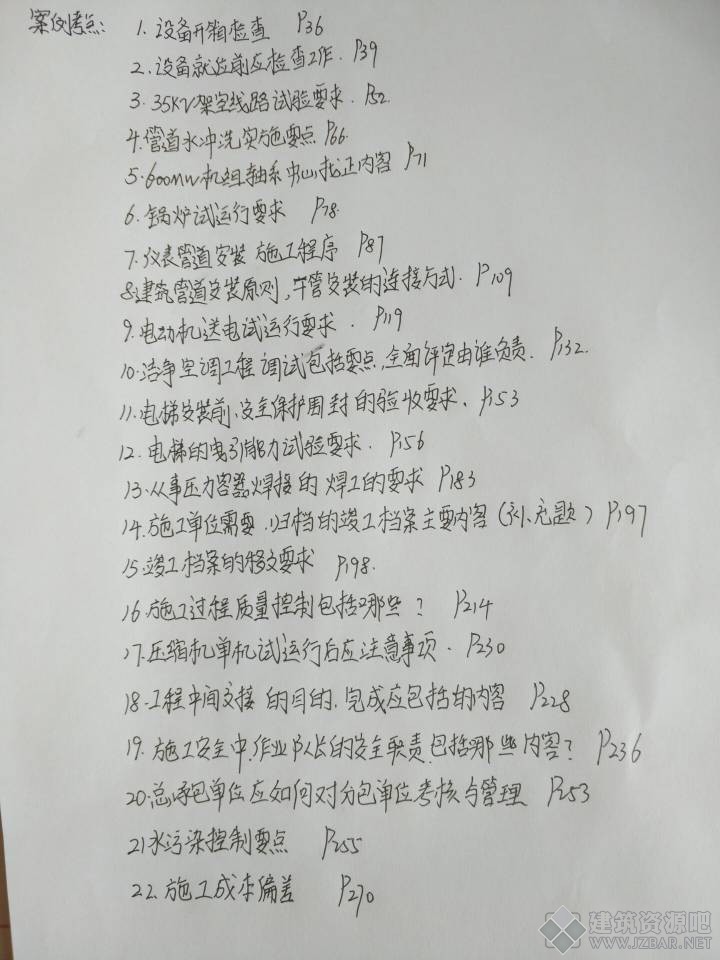 案例考点:
1. 设备开箱检查 P36
2. 设备就位前应检查工作. P39
3. 35KV架空线路试验要求. P52
4. 管道水冲洗实施要点 P66
5. 600MW机组轴系中心找正内容 P71
6. 锅炉试运行要求 P78
7. 仪表管道安装 施工程序 P87
8. 建筑管道安装原则, 管安装的连接方式. P109
9. 电动机送电试运行要求. P119
10. 洁净空调工程调试包括要点, 全面评定由谁负责. P132
11. 电梯安装前、安全保护围封的验收要求. P153
12. 电梯的曳引能力试验要求. P156
13. 从事压力容器焊接的焊工的要求 P183
14. 施工单位需要归档的竣工档案主要内容 (补充题) P197
15. 竣工档案的移交要求 P198.
16. 施工过程质量控制包括哪些? P214
17. 压缩机单机试运行后应注意事项. P230
18. 工程中间交接的目的. 完成应包括的内容 P228
19. 施工安全中, 作业队长的安全职责包括哪些内容? P236
20. 总承包单位应如何对分包单位考核与管理 P253
21 水污染控制要点 P255
22. 施工成本偏差 P270
建筑资源吧
WWW.JZBAR.NET